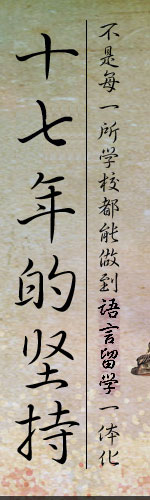 不是每一所学校都能做到语言留学一体化
十七年的坚持